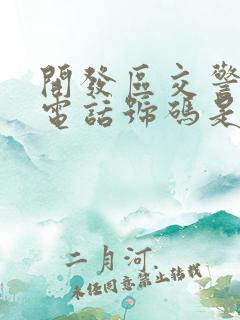 開發區交警
電話號碼是
二月河
未经同意禁止转载